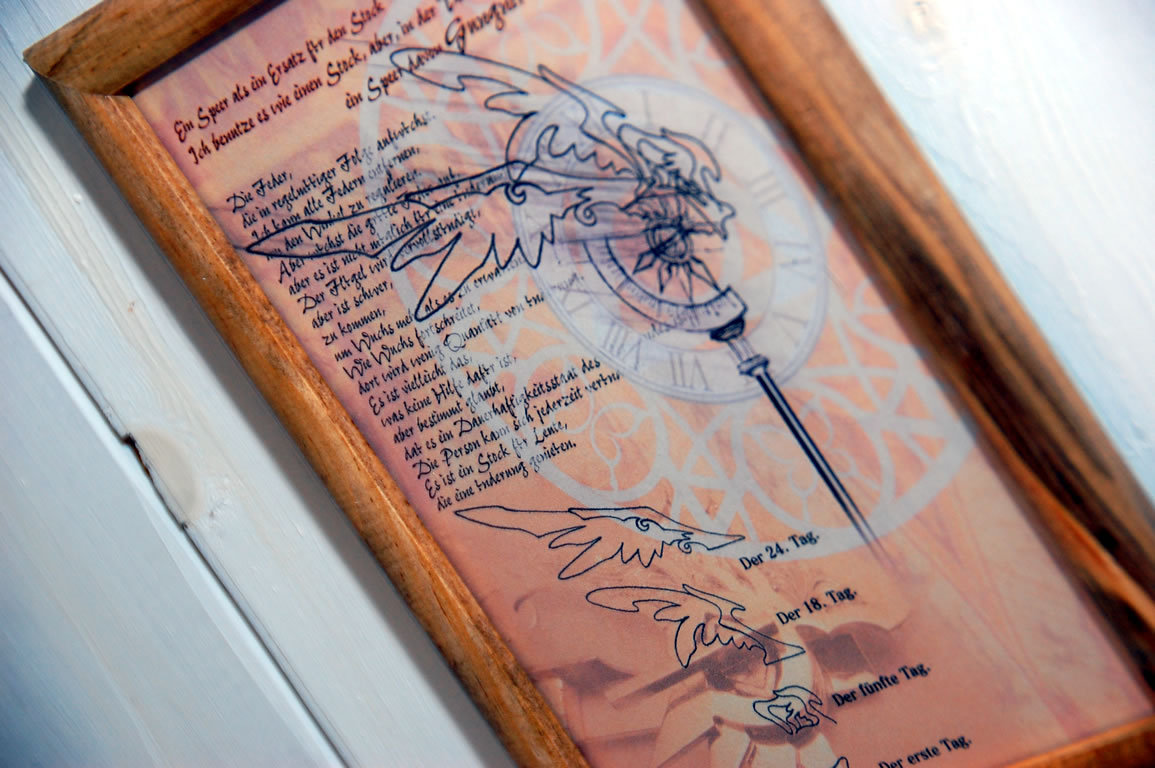 Ein Speer als ein Ersatz für den Stock
Ich benutze es wie einen Stock, aber, in der
ein Speer davon Gungnir
Die Feder,
die in regelmäßiger Folge aufwächst.
Ich kann alle Federn entfernen,
den Winkel zu regulieren.
Aber wächst die größte Feder
aber es ist nicht möglich für eine
Der Flügel wird vervollständigt,
aber ist schwer,
zu kommen,
um Wuchs mehr als zu
Wie Wuchs fortschreitet,
dort wird wenig Quantität von
Es ist vielleicht das,
was keine Hilfe dafür ist,
aber bestimmt glaubt,
daß es ein Dauerhaftigkeitsstadt des
Die Person kann sich jederzeit
Es ist ein Stock für Leute,
die eine Änderung genießen.
Der 24. Tag.
Der 18. Tag.
Der fünfte Tag.
Der erste Tag.
VII
VI
III